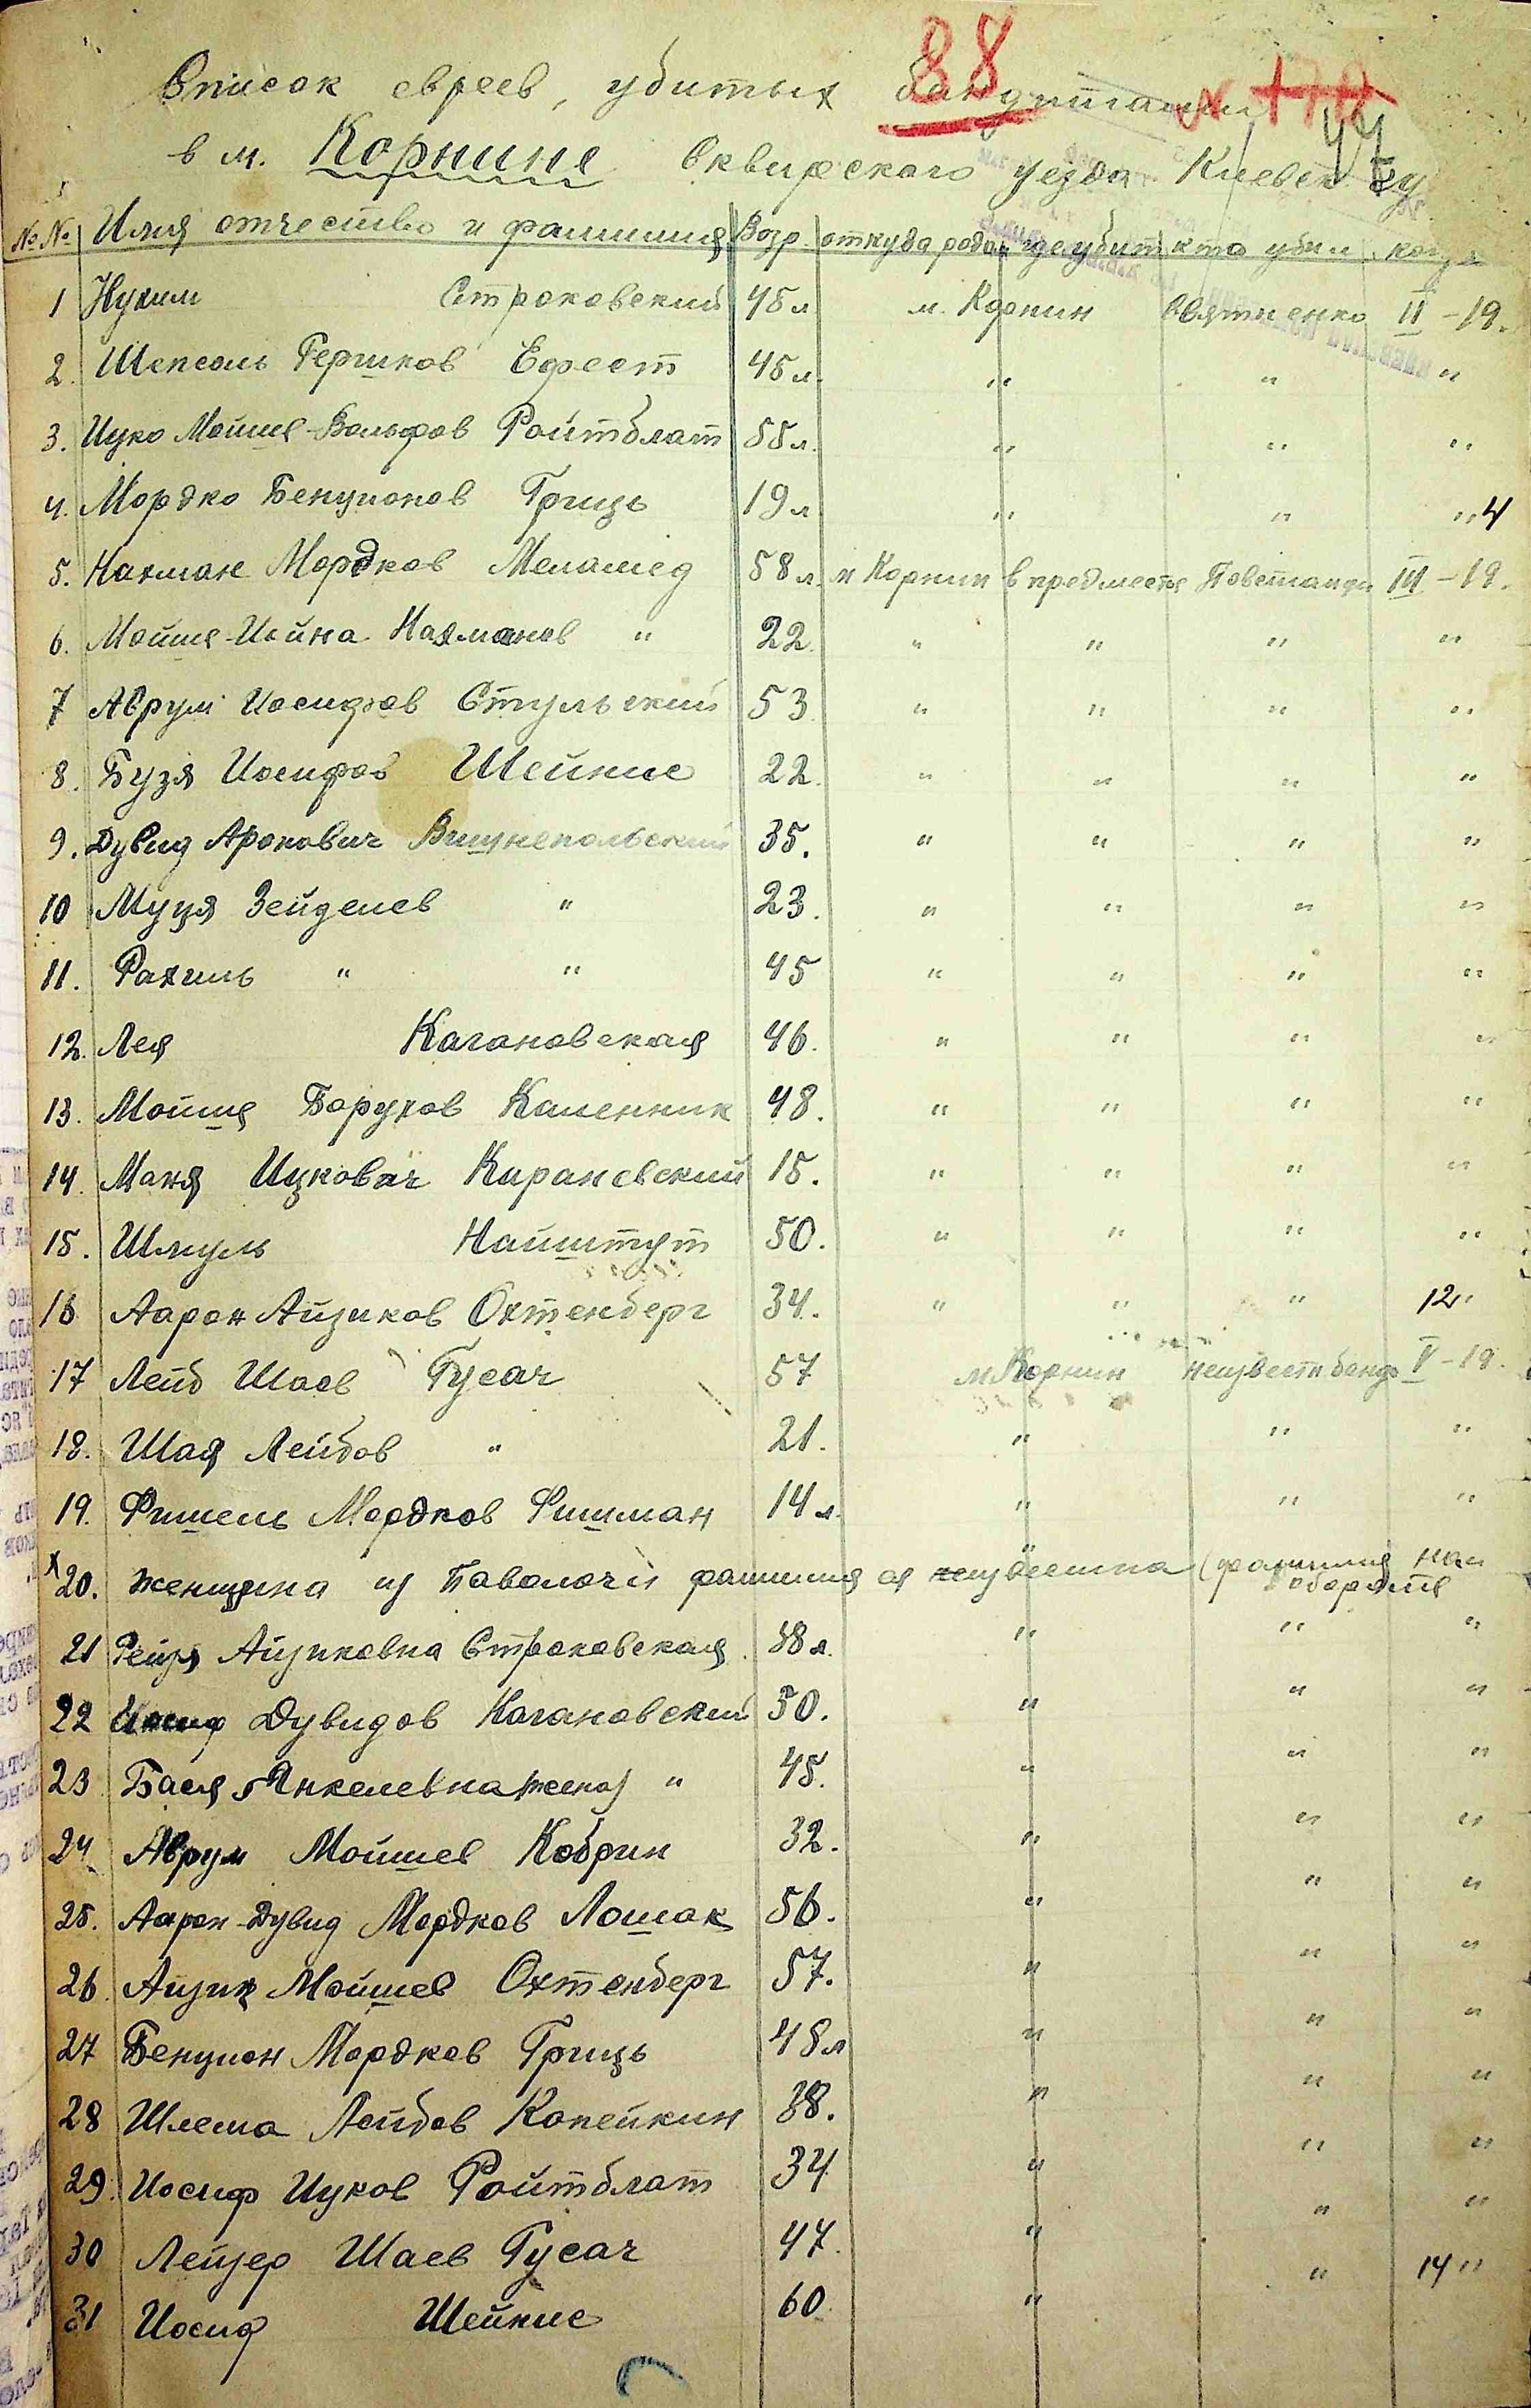 88
№ 170
44
Список евреев, убитых бандитами
в м. Корнине Сквирского уезда Киевск. гу
№№ Имя отчество и фамилия Возр. откуда родом где убит кто убил когда
1 Нухим Строковский 45 л м. Корнин II – 19.
2. Шепсель Гершков Ефест 45 л. " " "
3. Ицко Мойше-Вольфов Ройтблат 55 л. " " "
4. Мордко Бенционов Гриць 19 л " " " 4
5. Нахман Мордков Меламед 58 л. м Корнин в предместье Повстанцы III – 19.
6. Мойше-Иойна Нахманов " 22. " " " "
7 Аврум Иосифов Стульский 53 " " " "
8. Бузя Иосифов Шейнис 22. " " " "
9. Дувид Аронович Вишнепольский 35. " " " "
10 Муця Зейделев " 23. " " " "
11. Рахиль " " 45 " " " "
12. Лея Кагановская 46. " " " "
13. Мойше Борухов Каменник 48. " " " "
14. Маня Ицкович Кирановский 15. " " " "
15. Шмуль Найштут 50. " " " "
16 Аарон Айзиков Охтенберг 34. " " " 12 "
17 Лейб Шаев Гусач 57 м Корнин неизвестн банд V – 19.
18. Шая Лейбов " 21. " " "
19. Фишель Мордков Фишман 14 л. " " "
х 20. Женщина из Паволочи фамилия ея неизвестна (фамилия на
обороте
21 Рейзя Айзиковна Строковская 38 л. " " "
22 Иосиф Дувидов Кагановский 50. " " "
23 Бася Янкелевна (жена) " 45. " " "
24 Аврум Мойшев Кобрин 32. " " "
25. Аарон-Дувид Мордков Лошак 56. " " "
26. Айзик Мойшев Охтенберг 57. " " "
27 Бенцион Мордков Гриць 48 л " " "
28 Шлема Лейбов Копейкин 38. " " "
29. Иосиф Ицков Ройтблат 34 " " "
30 Лейзер Шаев Гусач 47. " " "
31 Иосиф Шейнис 60 " " 14 "